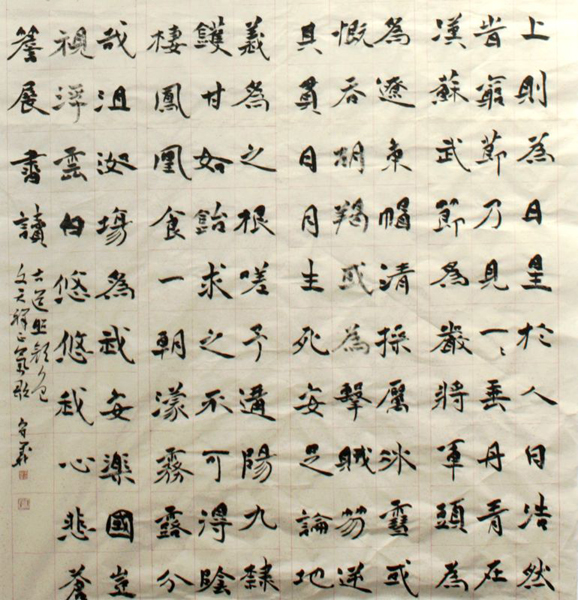 上則為日星於人曰浩然
旹窮節乃見一〻垂丹青在
漢蘇武節為嚴將軍頭為
為遼東帽清操厲冰雪或
慨吞胡羯或為擊賊笏逆
其貫日月生死安足論地
義為之根嗟予遘陽九隸
鑊甘如飴求之不可得陰
棲鳳凰食一朝濛霧露分
哉沮洳場為我安樂國豈
視浮雲白悠悠我心悲蒼
簷展書讀
古道照顏色
文天祥正氣歌